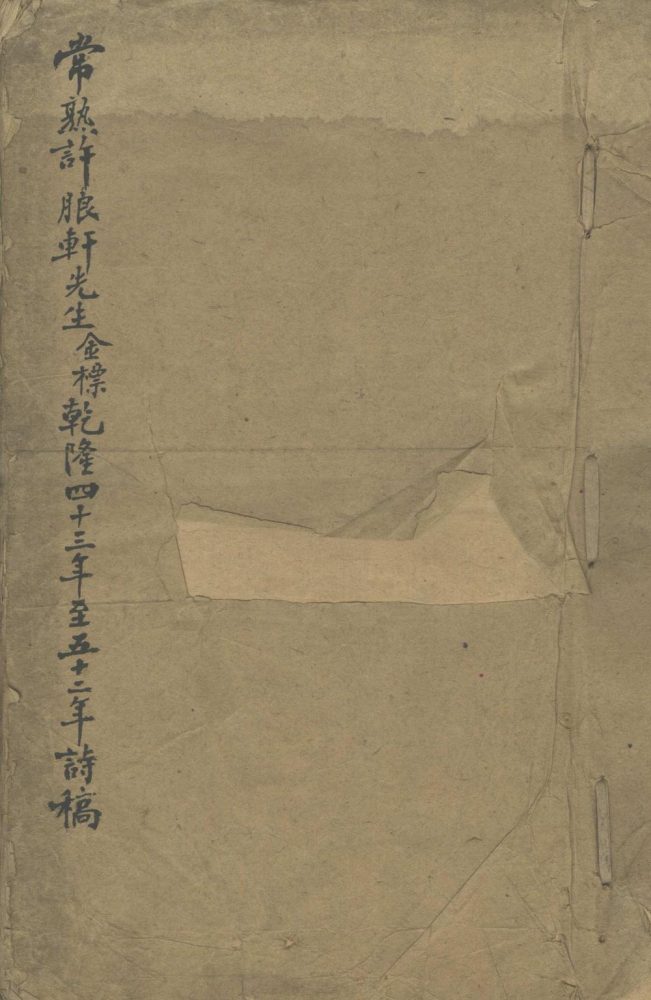 常熟許朖軒先生金標乾隆四十三年至五十二年詩稿